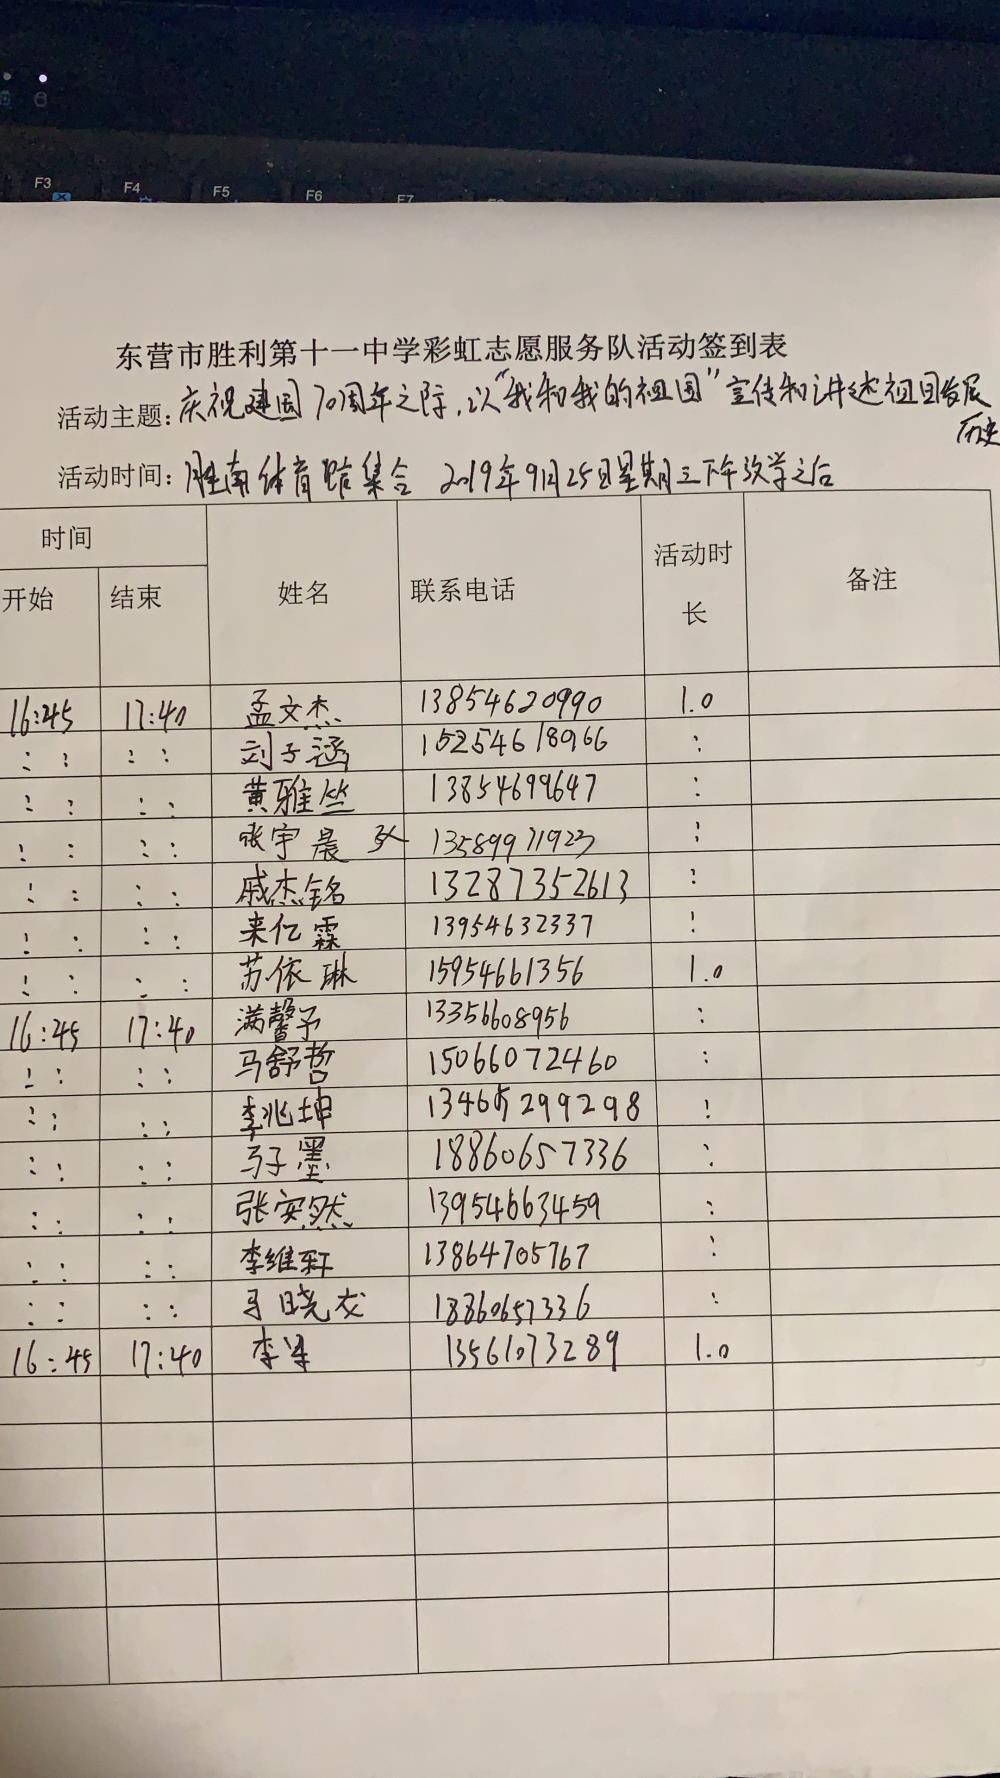 F3 F4 F5 F6 F7
东营市胜利第十一中学彩虹志愿服务队活动签到表
活动主题：庆祝建国70周年之际，以“我和我的祖国”宣传和讲述祖国发展
历史
活动时间：胜南体育馆集合 2019年9月25日星期三下午放学之后
时间 姓名 联系电话 活动时长 备注
开始 结束
16:45 17:40 孟文杰 13854620990 1.0
: : : : 刘子涵 15254618966 :
: : : : 黄雅丝 13854699647 :
: : : : 张宇晨 13589971923 :
: : : : 戚杰铭 13287352613 :
: : : : 来亿霖 13954632337 :
: : : : 苏依琳 15954661356 1.0
16:45 17:40 满馨予 13356608956 :
: : : : 马舒哲 15066072460 :
: : : : 李兆坤 13465299298 :
: : : : 马子墨 18860657336 :
: : : : 张安然 13954663459 :
: : : : 李维轩 13864705767 :
: : : : 马晓 18860657336 :
16:45 17:40 李 13561073289 1.0